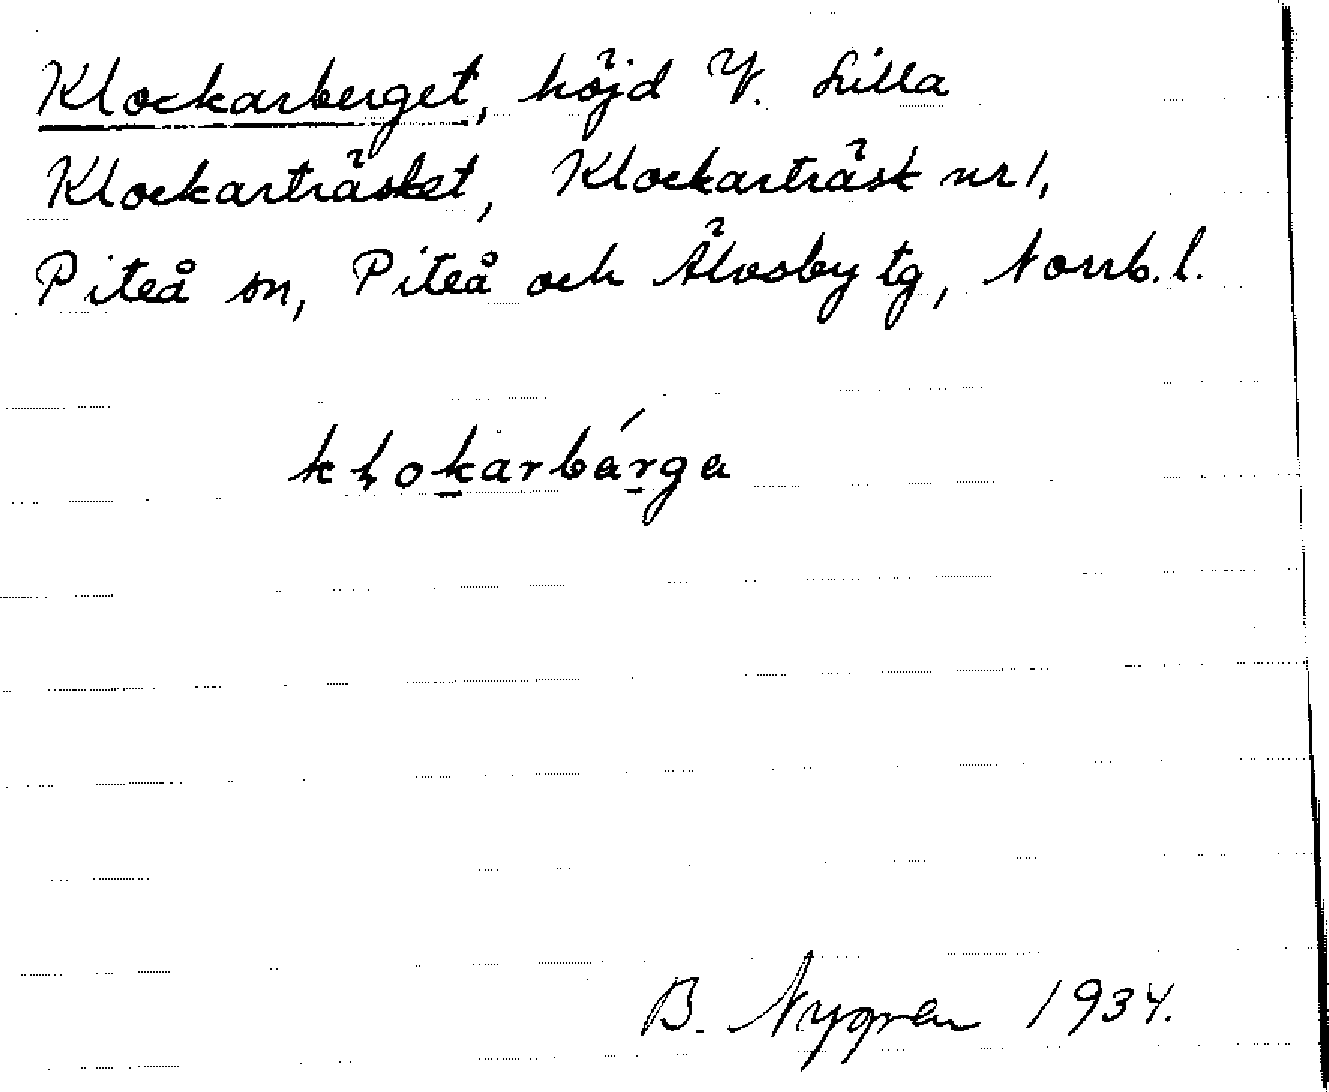 Klockarberget, höjd V. Lilla
Klockarträsket, Klockarträsk nr 1,
Piteå sn, Piteå och Älvsby tg, Norrb. l.
kḷokarbárga
B. Nygren 1934.